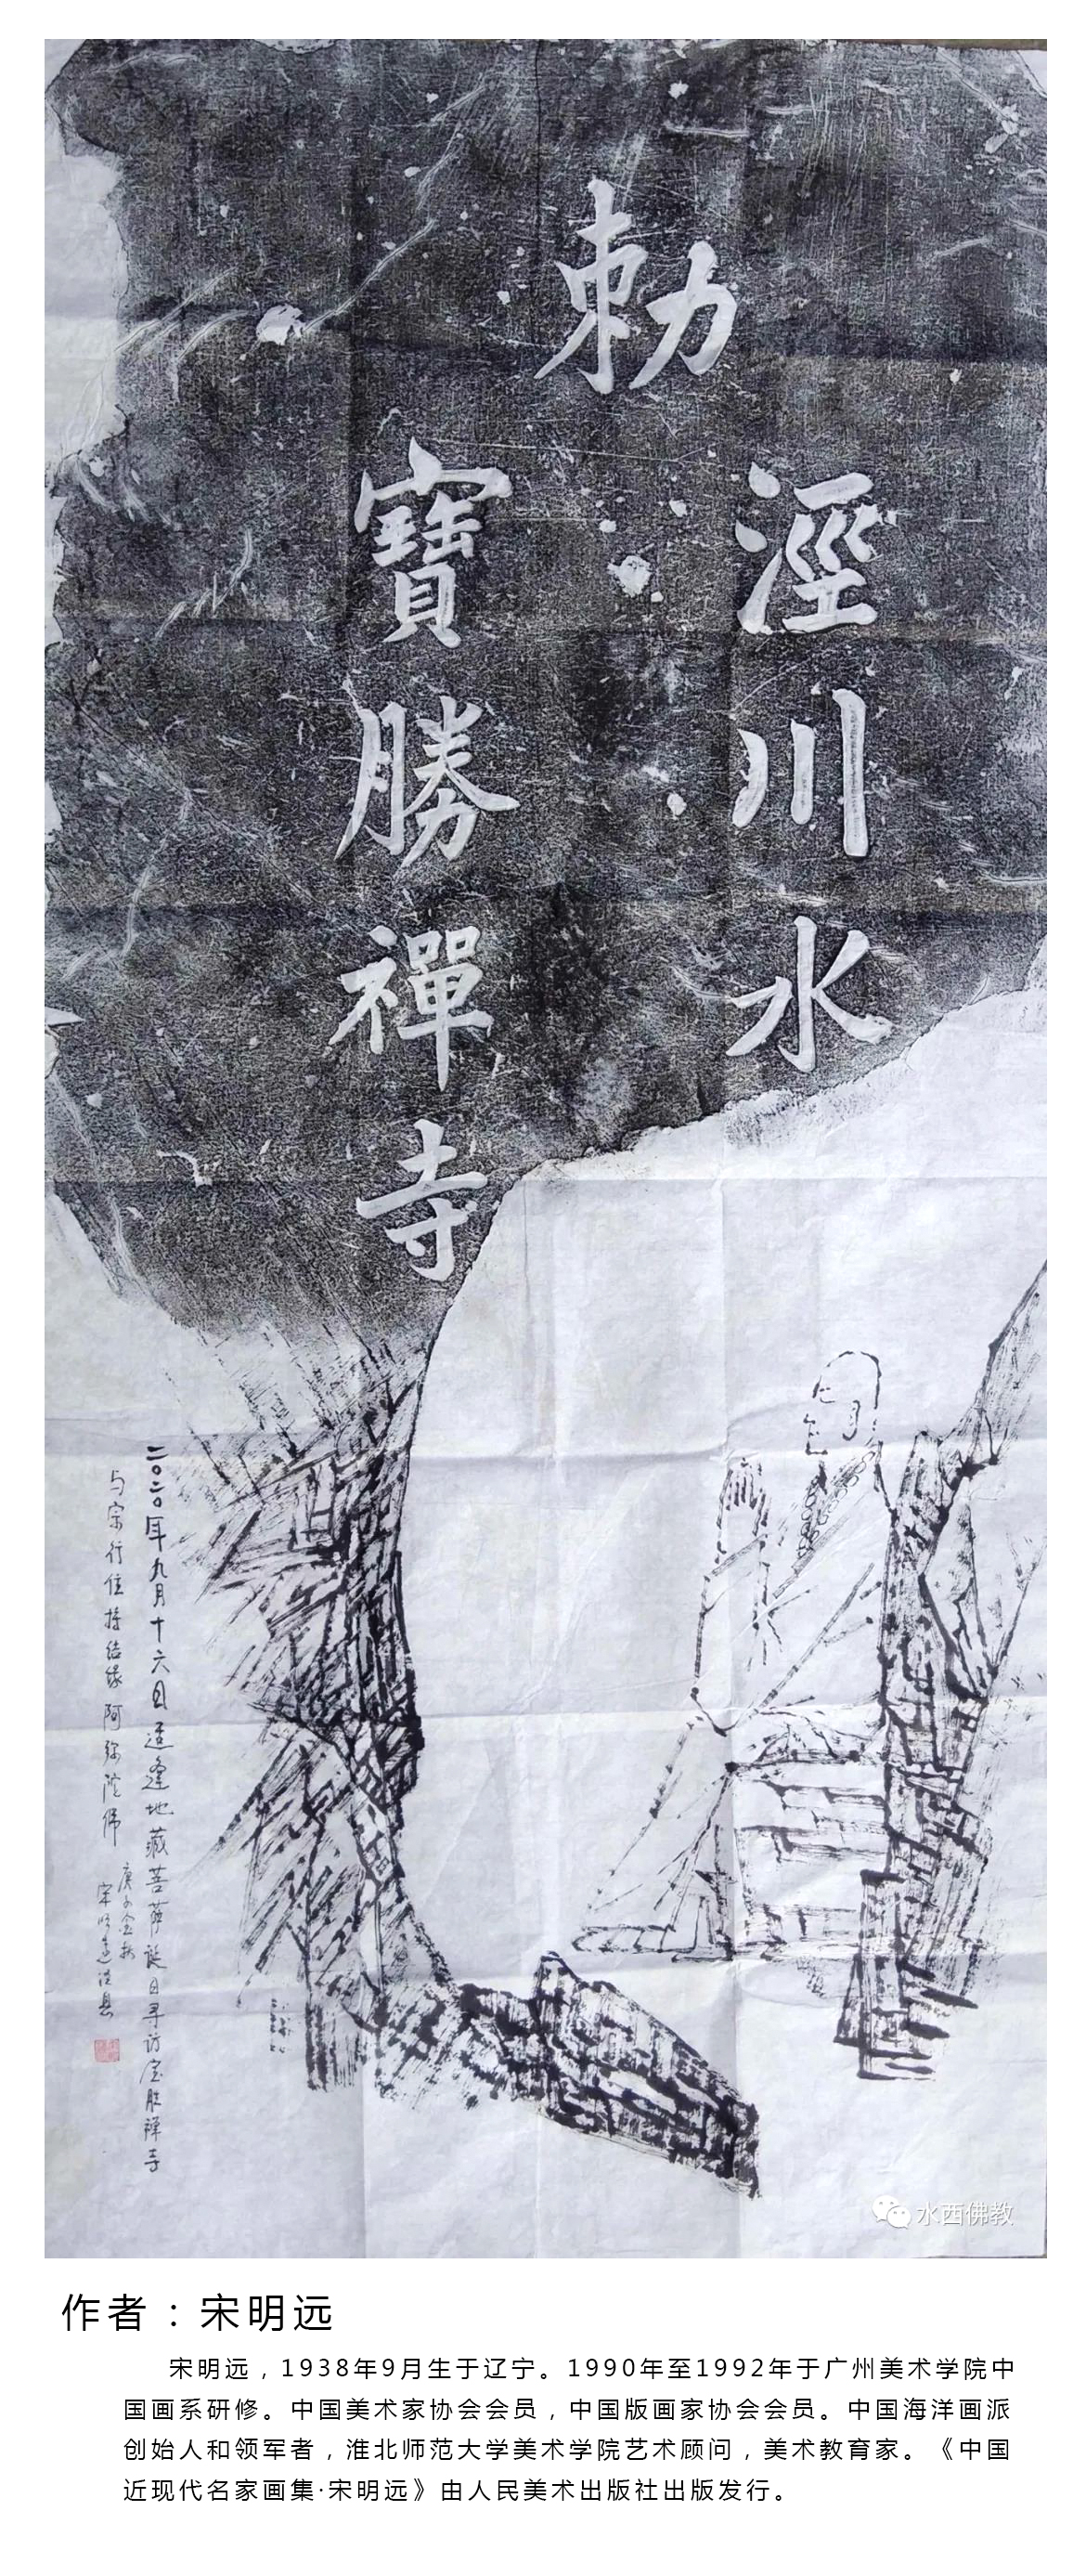 勅
涇川水
寶勝禪寺
二〇二〇年九月十六日适逢地藏菩萨诞日寻访宝胜禅寺
与宗行住持结缘 阿弥陀佛
庚子金秋
宋明远
水西佛教
作者：宋明远
宋明远，1938年9月生于辽宁。1990年至1992年于广州美术学院中
国画系研修。中国美术家协会会员，中国版画家协会会员。中国海洋画派
创始人和领军者，淮北师范大学美术学院艺术顾问，美术教育家。《中国
近现代名家画集·宋明远》由人民美术出版社出版发行。